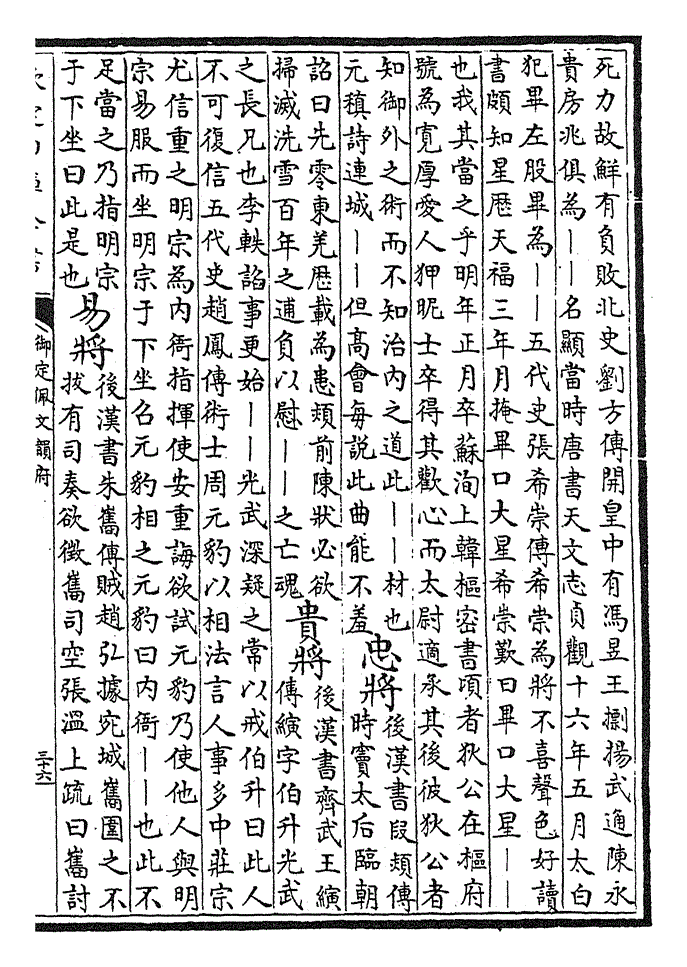 死力故鮮有負敗北史劉方傳開皇中有馮昱王㩧揚武通陳永
貴房兆俱為丨丨名顯當時唐書天文志貞觀十六年五月太白
犯畢左股畢為丨丨五代史張希崇傳希崇為將不喜聲色好讀
書頗知星歴天福三年月掩畢口大星希崇歎曰畢口大星丨丨
也我其當之乎明年正月卒蘇洵上韓樞密書頃者狄公在樞府
號為寛厚愛人狎昵士卒得其歡心而太尉適承其後彼狄公者
知御外之術而不知治内之道此丨丨材也
元稹詩連城丨丨但髙會每説此曲能不羞
忠將
後漢書段熲傳
時竇太后臨朝
詔曰先零東羌歴載為患熲前陳狀必欲
掃滅洗雪百年之逋負以慰丨丨之亡魂
貴將
後漢書齊武王縯
傳縯字伯升光武
之長兄也李軼諂事更始丨丨光武深疑之常以戒伯升曰此人
不可復信五代史趙鳳傳術士周元豹以相法言人事多中莊宗
尤信重之明宗為内衙指揮使安重誨欲試元豹乃使他人與明
宗易服而坐明宗于下坐召元豹相之元豹曰内衙丨丨也此不
足當之乃指明宗
于下坐曰此是也
易將
後漢書朱儁傳賊趙弘據宛城儁圍之不
拔有司奏欲徵儁司空張溫上疏曰儁討
御定佩文韻府
三十六